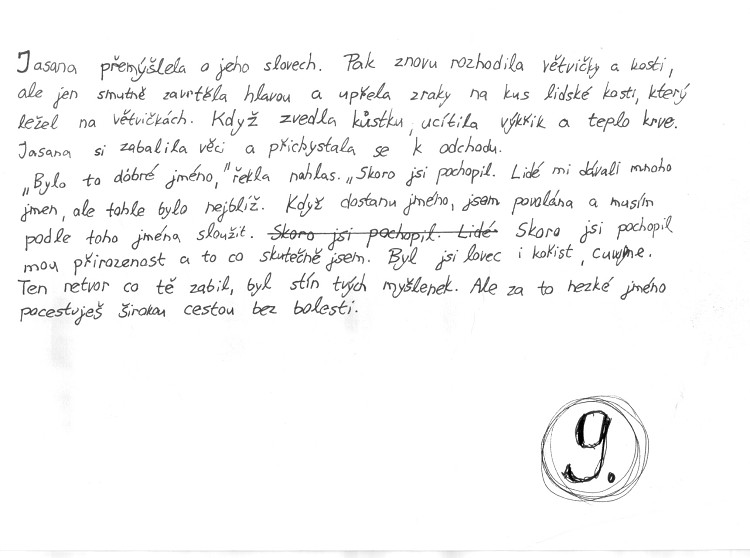 Jasana přemýšlela o jeho slovech. Pak znovu rozhodila větvičky a kosti,
ale jen smutně zavrtěla hlavou a upřela zraky na kus lidské kosti, který
ležel na větvičkách. Když zvedla kůstku, ucítila výkřik a teplo krve.
Jasana si zabalila věci a přichystala se k odchodu.
„Bylo to dobré jméno," řekla nahlas. „Skoro jsi pochopil. Lidé mi dávali mnoho
jmen, ale tohle bylo nejblíž. Když dostanu jméno, jsem povolána a musím
podle toho jména sloužit. Skoro jsi pochopil. Lidé Skoro jsi pochopil
mou přirozenost a to co skutečně jsem. Byl jsi lovec i kořist,
Ten netvor co tě zabil, byl stín tvých myšlenek. Ale za to hezké jméno
pocestuješ širokou cestou bez bolesti.
9.